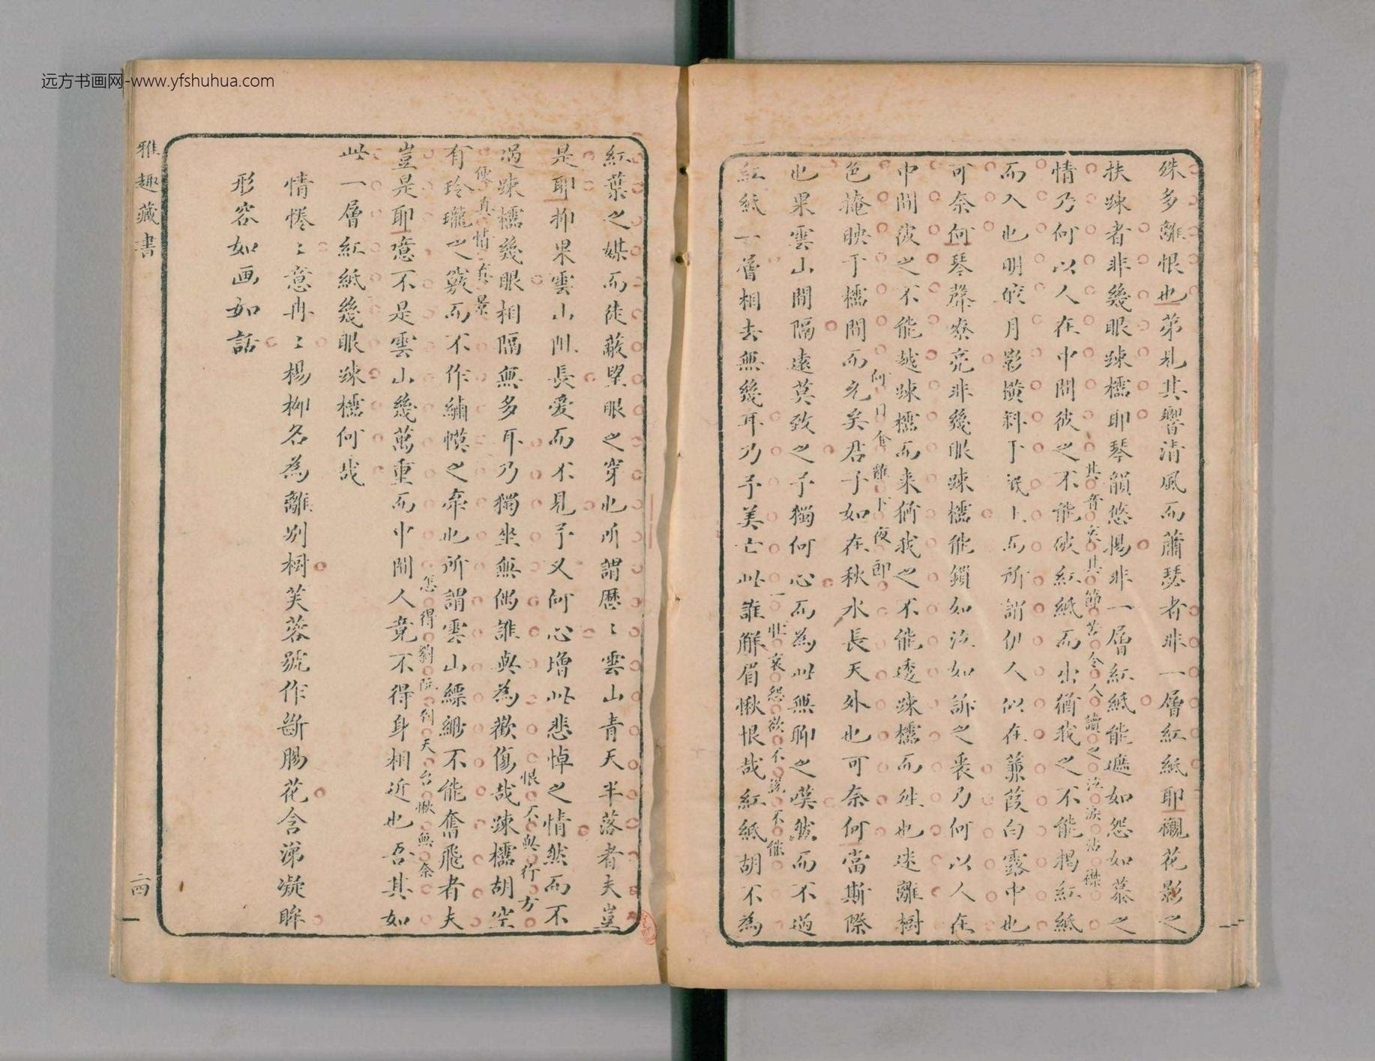 远方书画网-www.yfshuhua.com
殊多離恨也第札其響清風而蕭瑟者非一層紅紙耶襯花影之
扶踈者非幾眼踈櫺耶琴韻悠揚非一層紅紙能遮如怨如慕之
其音哀其節苦令人讀之淚沾襟
情乃何以人在中間彼之不能破紅紙而出猶我之不能揭紅紙
而入也明皎月影橫斜于 上而所謂伊人似在蒹葭白露中也
可奈何琴聲嘹亮非幾眼踈櫺能鎖如泣如訴之衷乃何以人在
中間彼之不能越踈櫺而来猶我之不能透踈櫺而往也迷離樹
何日會難卜夜郎
色掩映于櫺間而已矣君子如在秋水長天外也可奈何當斯際
也果雲山間隔遠莫致之予獨何心而為此無聊之嘆然而不過
一壯哀怨欲不 不餘
紅紙一層相去無幾耳乃予美亡此誰解眉愀恨哉紅紙胡不為
紅葉之媒而徒蔽望眼之穿也所謂歷〻雲山青天半落者夫豈
是耶抑果雲山阻長愛而不見予又何心增此悲悼之情然而不
恨不與行方
過踈櫺幾眼相隔無多耳乃獨坐無偶誰與為歡傷哉踈櫺胡空
便真情真景
有玲瓏之竅而不作繡幙之牽也所謂雲山縹緲不能奮飛者夫
怎得劉阮到天台愀無奈
豈是耶噫不是雲山幾萬重而中間人竟不得身相近也吾其如
此一層紅紙幾眼踈櫺何哉
情惓〻意冉〻楊柳名為離別樹芙蓉號作斷腸花含涕凝眸
形容如画如話
雅趣藏書
二四